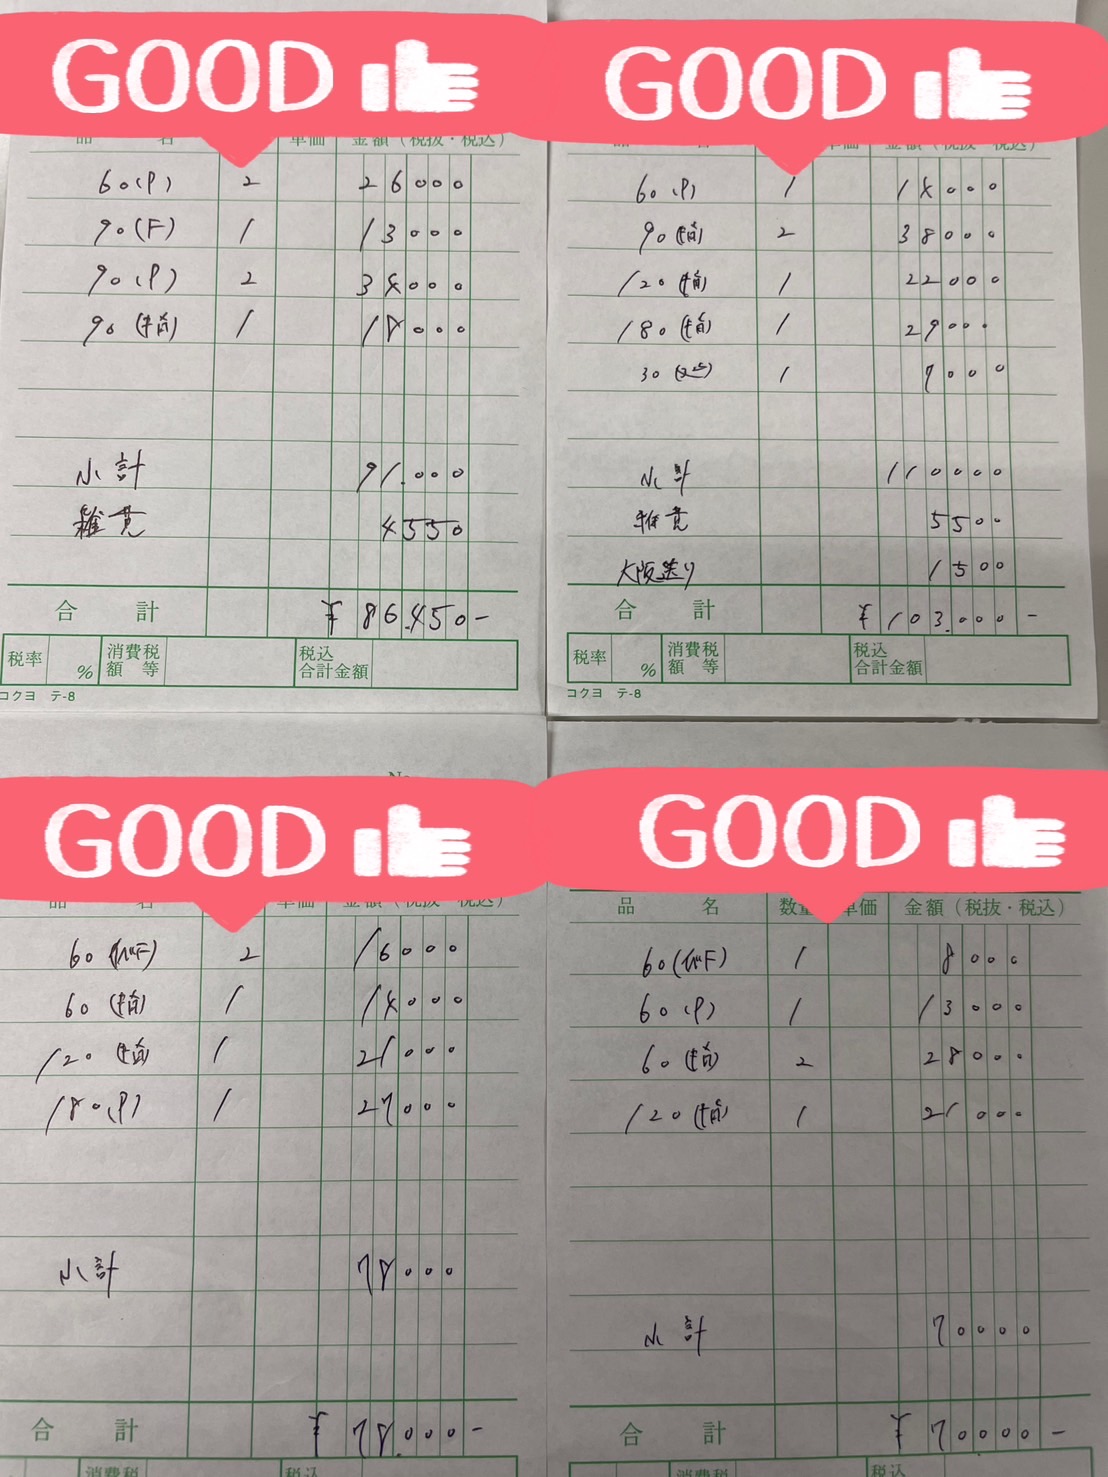 GOOD
品 名 単価 金額（税抜・税込）
60(P) 2 26000
90(F) 1 13000
90(P) 2 34000
90(指) 1 18000
小計 91.000
雑費 4550
合 計 ¥86.450-
税率 % 消費税額等 税込合計金額
コクヨ テ-8
GOOD
品 名 単価 金額（税抜・税込）
60(P) 1 14000
90(指) 2 38000
120(指) 1 22000
180(指) 1 29000
30 1 7000
小計 110000
雑費 5500
大阪送り 1500
合 計 ¥103.000-
税率 % 消費税額等 税込合計金額
コクヨ テ-8
No
GOOD
品 名 単価 金額（税抜・税込）
60 2 16000
60(指) 1 14000
120(指) 1 21000
180(P) 1 27000
小計 78000
合 計 ¥78.000-
消費税 税込
GOOD
品 名 数量 単価 金額（税抜・税込）
60 1 8000
60(P) 1 13000
60(指) 2 28000
120(指) 1 21000
小計 70000
合 計 ¥70000-
消費税 税込